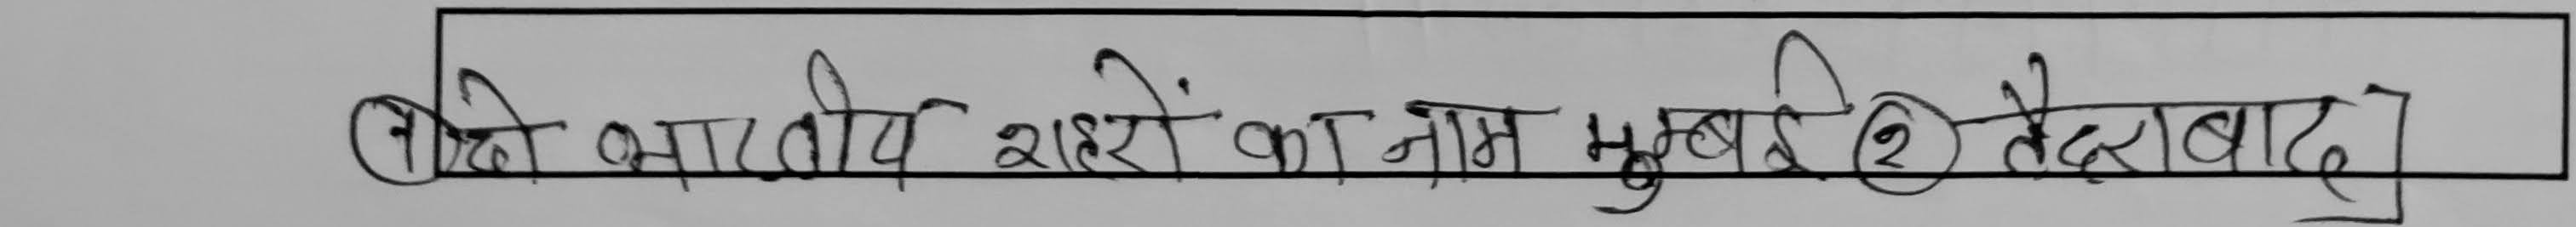 ① दो भारतीय शहरों का नाम मुम्बई ② हैदराबाद]